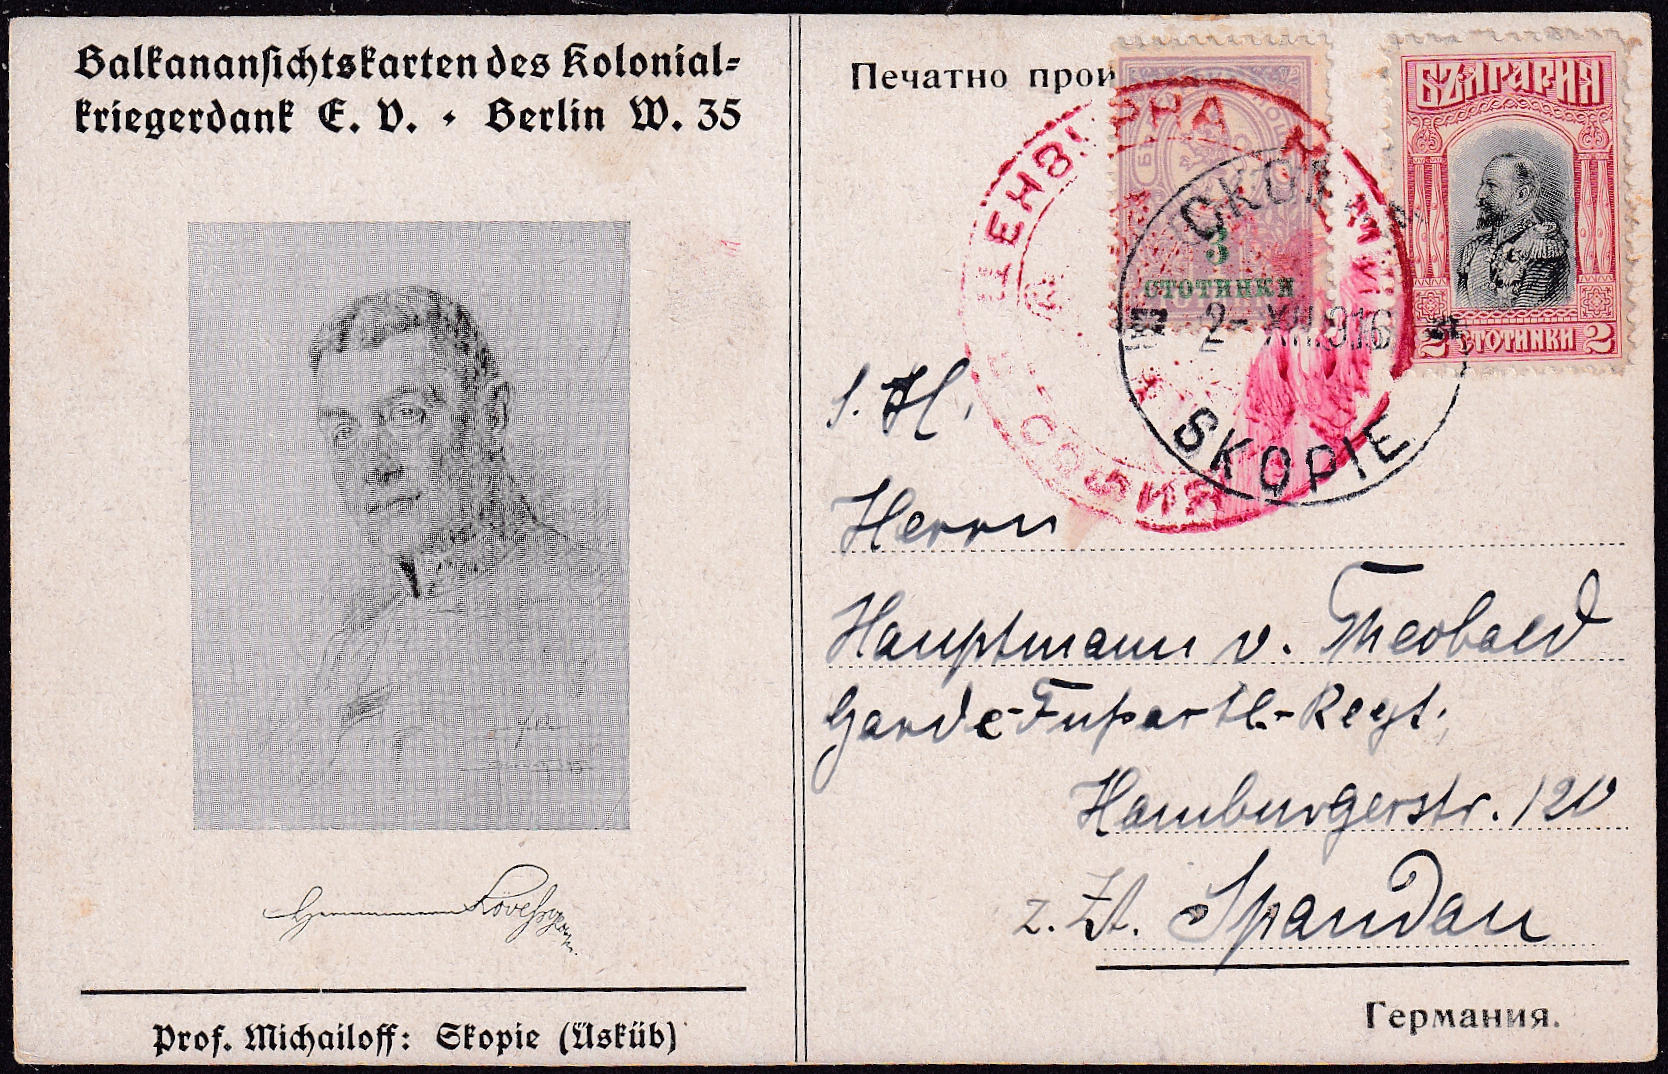 Balkanansichtskarten des Kolonial=
kriegerdank E. V. · Berlin W. 35
Prof. Michailoff: Skopie (Üsküb)
Печатно прои
БЪЛГАРИЯ
2 СТОТИНКИ 2
3
СТОТИНКИ
СКОП
2- XII.916
SKOPIE
СОФИЯ
S. H.
Herrn
Hauptmann v. Theobald
Garde-Fußartl.-Regt.
Hamburgerstr. 120
z. Zt. Spandau
Германия.